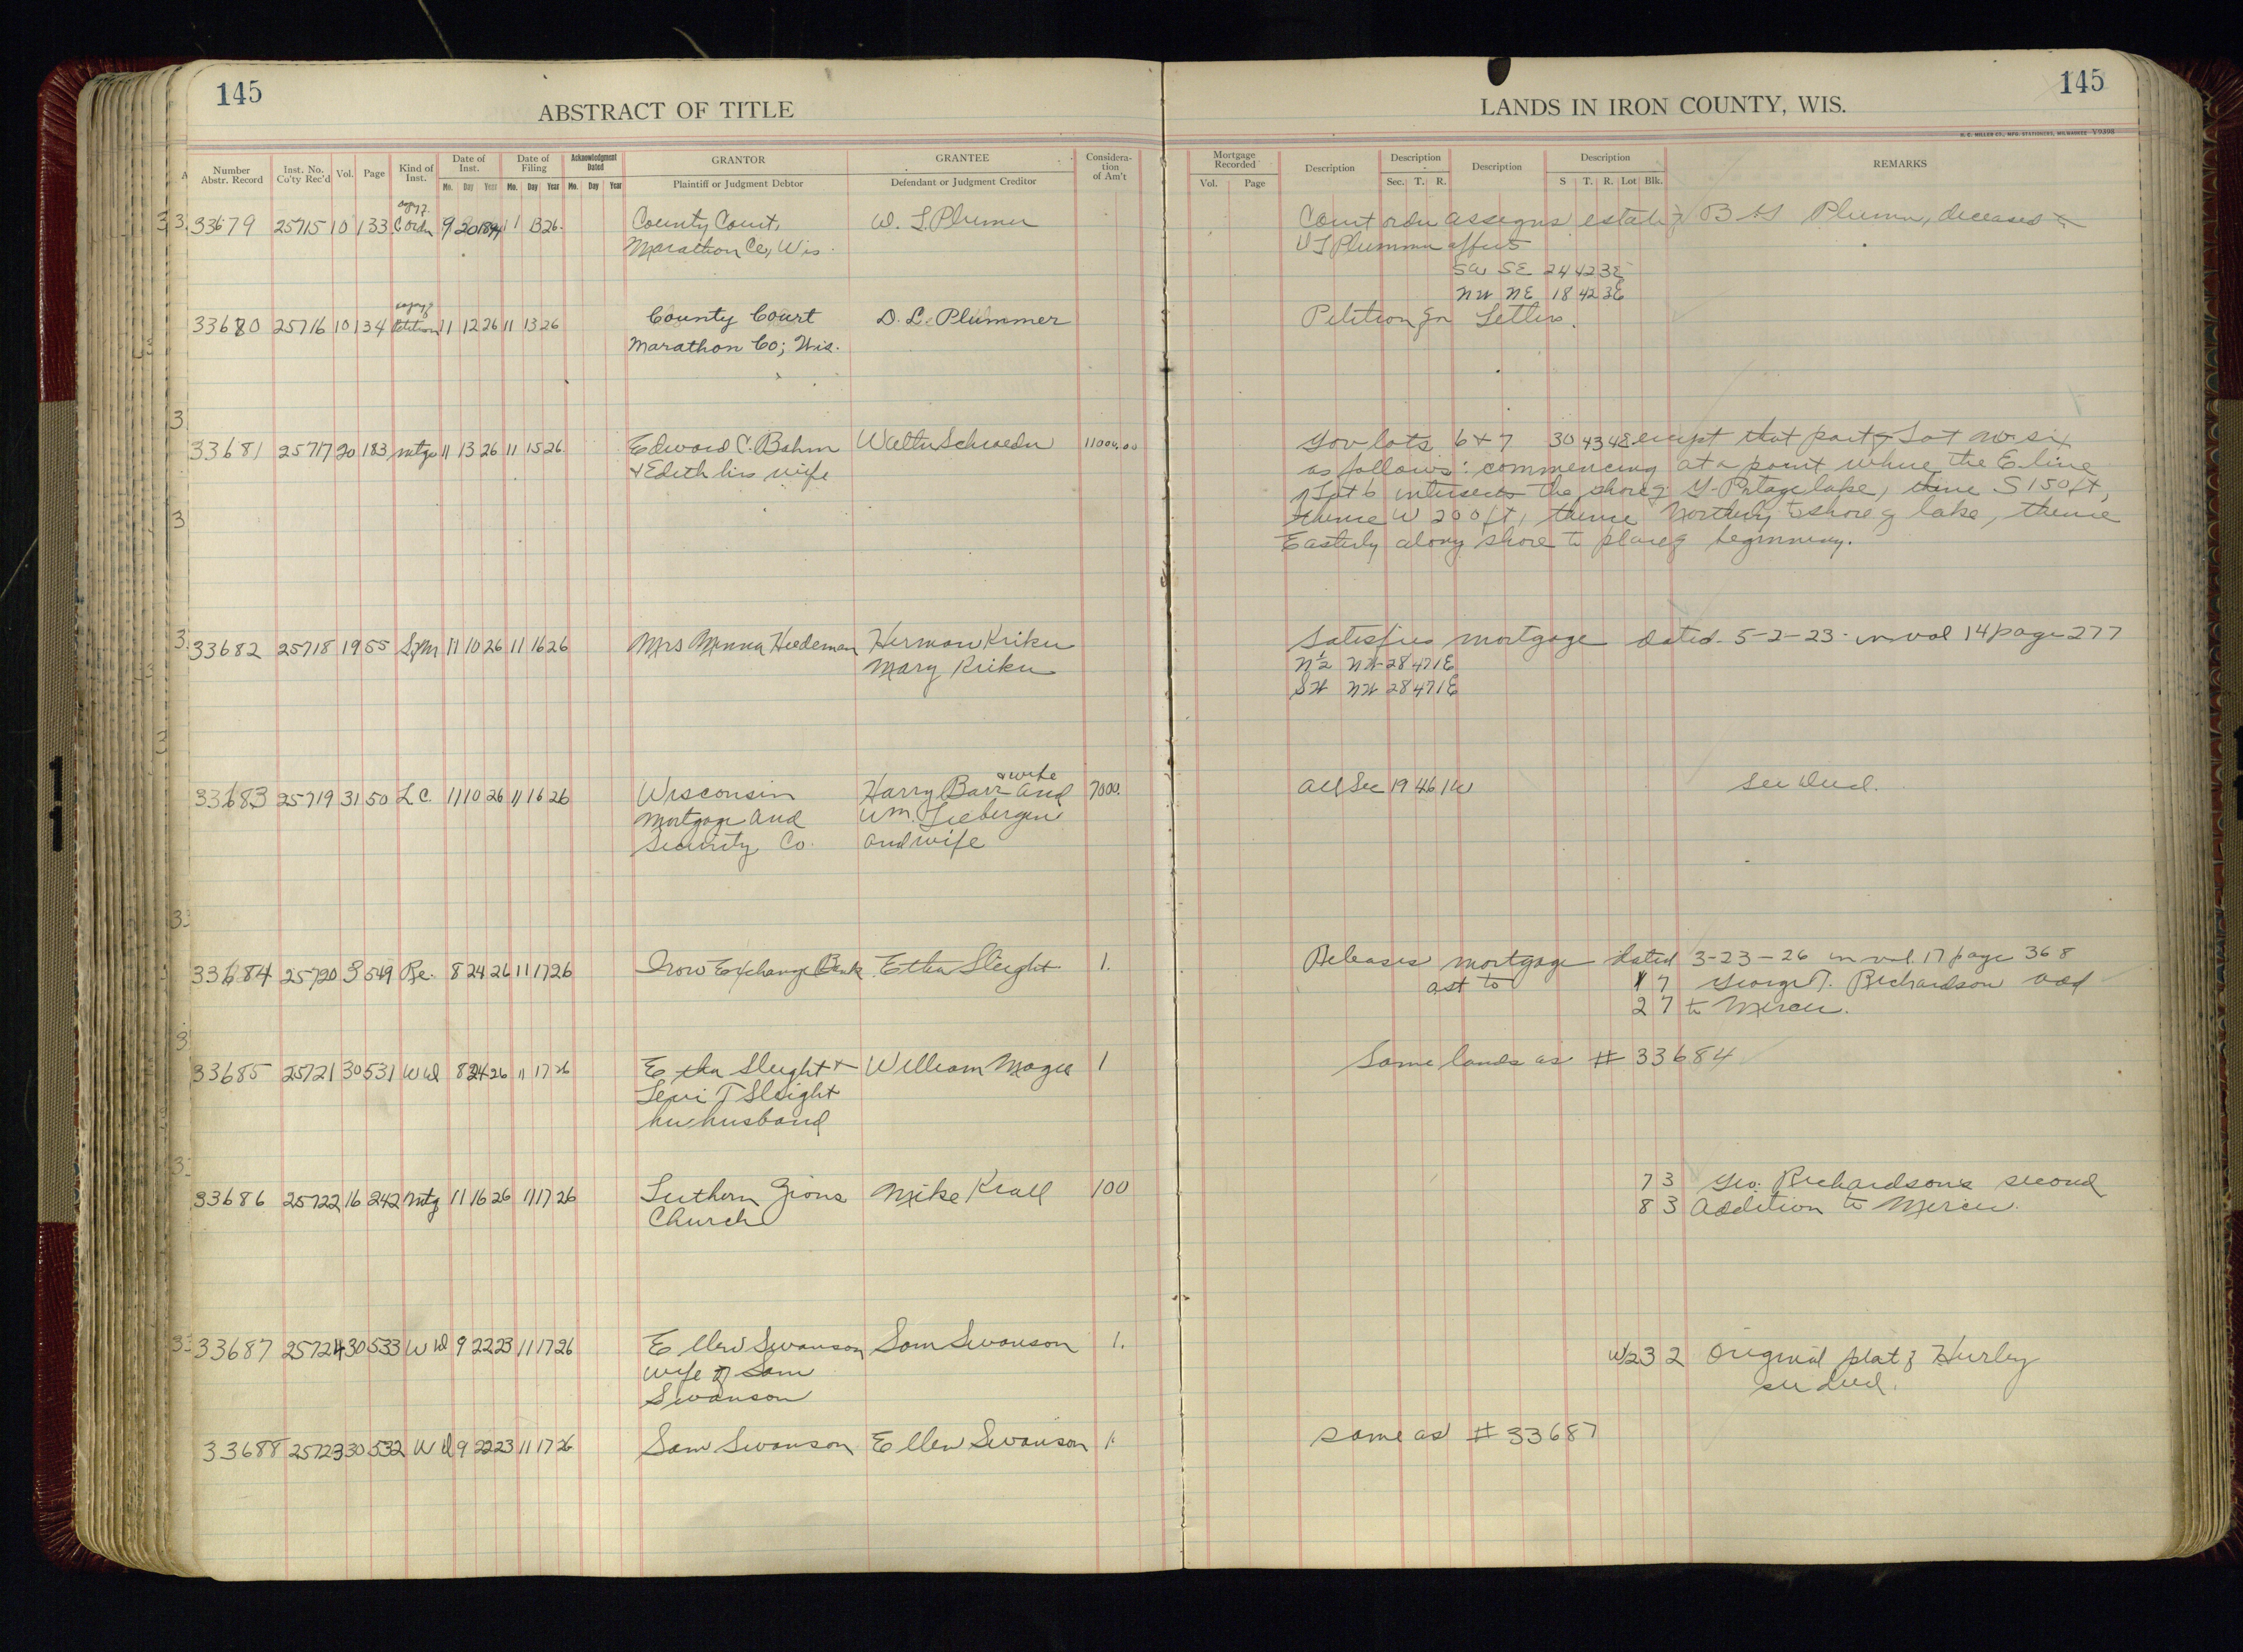 145
145
ABSTRACT OF TITLE
LANDS IN IRON COUNTY, WIS.
H. C. MILLER CO., MFG. STATIONERS, MILWAUKEE V9398
Number Abstr. Record | Inst. No. Co'ty Rec'd | Vol. | Page | Kind of Inst. | Date of Inst. Mo. Day Year | Date of Filing Mo. Day Year | Acknowledgment Dated Mo. Day Year | GRANTOR Plaintiff or Judgment Debtor | GRANTEE Defendant or Judgment Creditor | Consideration of Am't | Mortgage Recorded Vol. Page | Description | Description Sec. T. R. | Description | Description S T. R. Lot Blk. | REMARKS
copy of
33679 25715 10 133 C Order 9 20 1894 11 13 26 County Court, W. L. Plumer Court order assigns estate of B Plumer, deceased
Marathon Co, Wis.
SW SE 24 42 3E
NW NE 18 42 3E
copy of
33680 25716 10 134 Petition 11 12 26 11 13 26 County Court D. L. Plummer Petition for Letters.
Marathon Co; Wis.
33681 25717 20 183 mtge 11 13 26 11 15 26 Edward C. Bahm Walter Schroeder 11004.00 Gov lots 6 & 7 30 43 4E except that part of Lot no. six
& Edith his wife as follows: commencing at a point where the E. line
of Lot 6 intersects the shore of Portage lake, thence S 150 ft,
thence W 200 ft, thence Northerly to shore of lake, thence
Easterly along shore to place of beginning.
33682 25718 19 55 S of M 11 10 26 11 16 26 Mrs Minna Hiedeman Herman Kriker Satisfies mortgage dated 5-2-23 in vol 14 page 277
Mary Kriker N½ NW 28 47 1E
SW NW 28 47 1E
& wife
33683 25719 31 50 L. C. 11 10 26 11 16 26 Wisconsin Harry Barr and 7000. All Sec 19 46 1W See Deed.
Mortgage and Wm. Liebergen
Security Co. and wife
33684 25720 3 549 Re. 8 24 26 11 17 26 Iron Exchange Bank Etha Sleight 1. Releases mortgage dated 3-23-26 in vol. 17 page 368
as to 1 7 George T. Richardson add
2 7 to Mercer.
33685 25721 30 531 W D 8 24 26 11 17 26 Etha Sleight & William Magee 1 Same lands as # 33684
Levi T Sleight
her husband
33686 25722 16 242 Mtg 11 16 26 11 17 26 Luthern Zions Mike Krall 100 7 3 Geo. Richardsons second
Church 8 3 Addition to Mercer.
33687 25724 30 533 W D 9 22 23 11 17 26 Ellen Swanson Sam Swanson 1. W½ 3 2 Original plat of Hurley
wife of Sam see deed.
Swanson
33688 25723 30 532 W D 9 22 23 11 17 26 Sam Swanson Ellen Swanson 1. same as # 33687